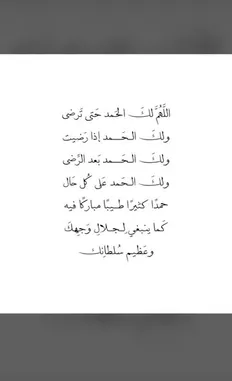 اللَّهُمَّ لكَ الحَمد حَتى تَرضى
ولكَ الـحَـمد إذا رَضيت
ولكَ الـحَــمد بَعد الرِّضى
ولكَ الـحَمد عَلى كُل حَال
حمدًا كثيرًا طـيبًا مباركًا فيه
كَما ينبغي لِجـلالِ وَجهِكَ
وعَظيمِ سُلطانِك